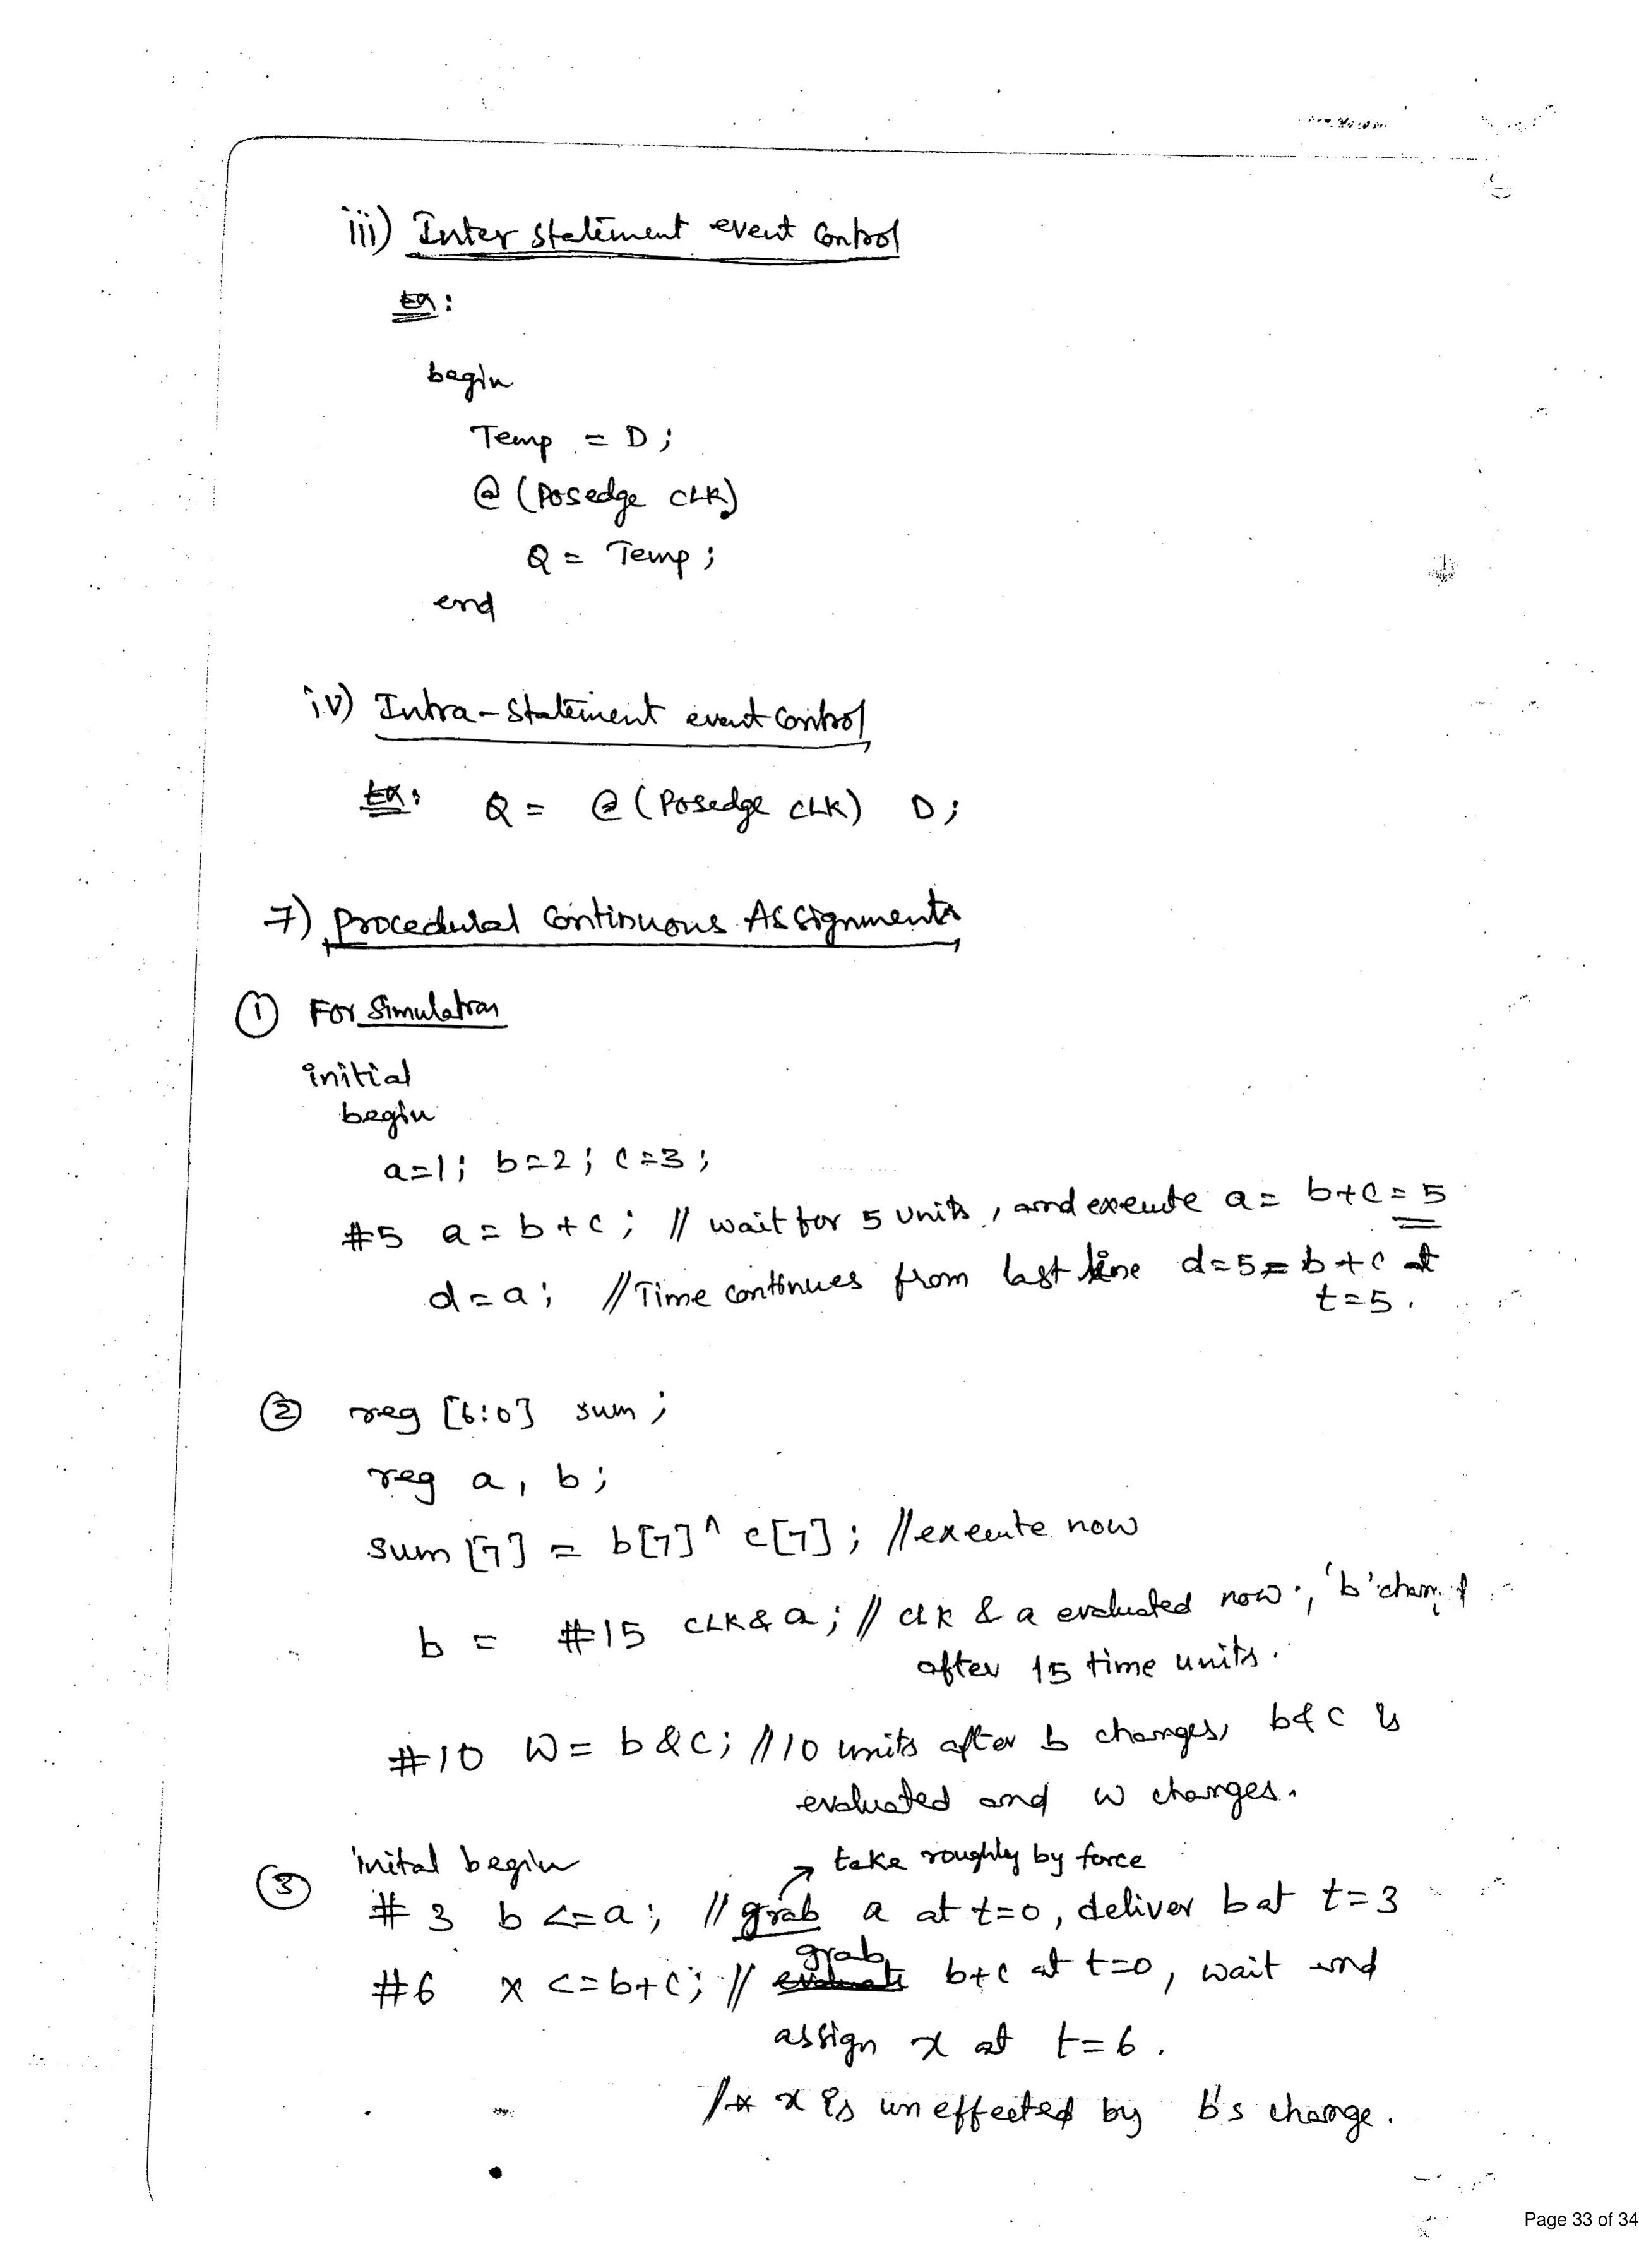 iii) Inter statement event control
Ex:
begin
Temp = D;
@ (Posedge CLK)
Q = Temp;
end
iv) Intra-statement event control
Ex: Q = @ (Posedge CLK) D;
7) Procedural Continuous Assignments
① For simulation
initial
begin
a=1; b=2; c=3;
#5 a = b + c; // wait for 5 units, and execute a = b+c = 5
d = a; // Time continues from last line d=5=b+c at
t=5.
② reg [6:0] sum;
reg a, b;
sum [7] = b[7] ^ c[7]; // execute now
b = #15 CLK & a; // CLK & a evaluated now; 'b' chang
after 15 time units.
#10 W = b & c; // 10 units after b changes, b&c is
evaluated and w changes.
③ inital begin
take roughly by force
# 3 b <= a; // grab a at t=0, deliver b at t=3
#6 x <= b+c; // grab b+c at t=0, wait and
assign x at t=6.
/* x is uneffected by b's change.
Page 33 of 34